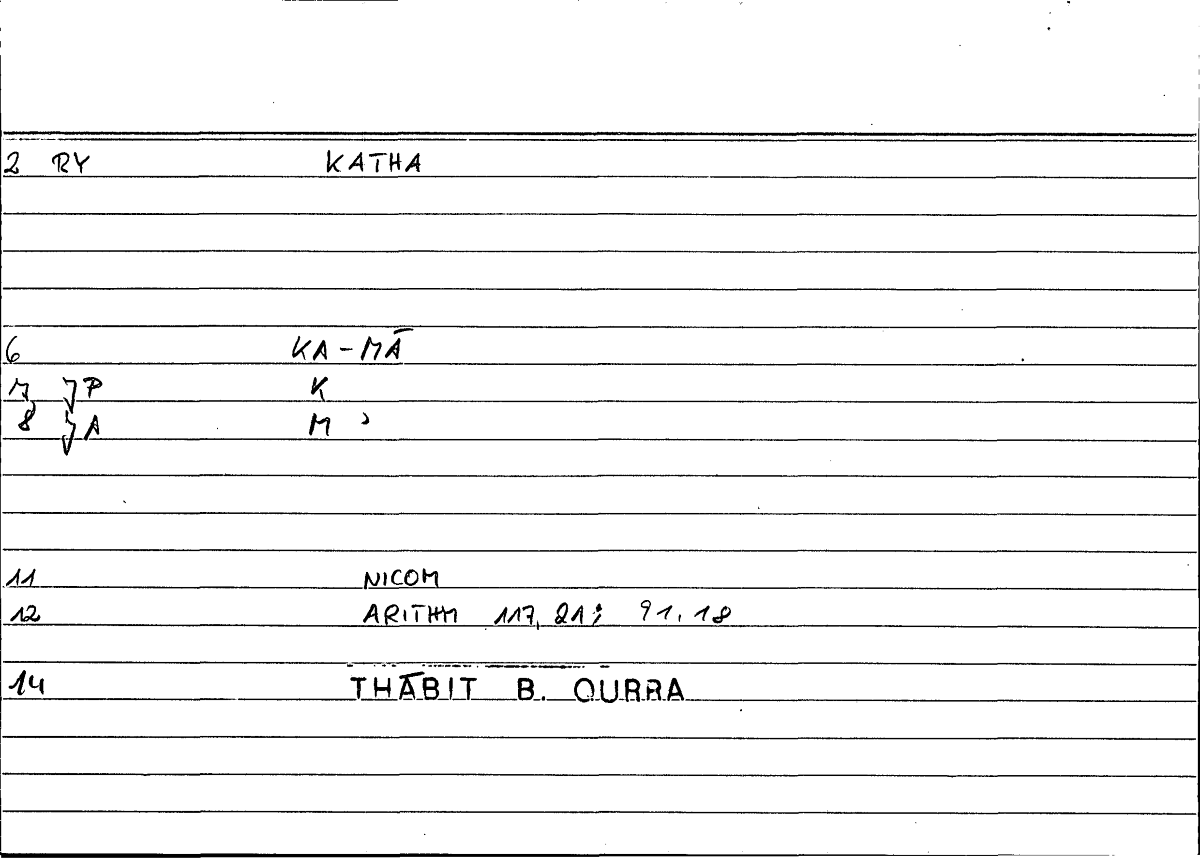 2 RY KATHA
6 KA-MĀ
7, P K
8 A M ʾ
11 NICOM
12 ARITHM 117,21; 91,18
14 THĀBIT B. QURRA